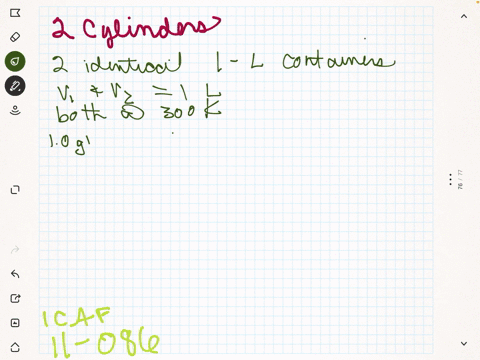 2 Cylinders
2 identical 1-L containers
V1 & V2 = 1 L
both @ 300 K
1.0 g
76 / 77
ICAF
11-086